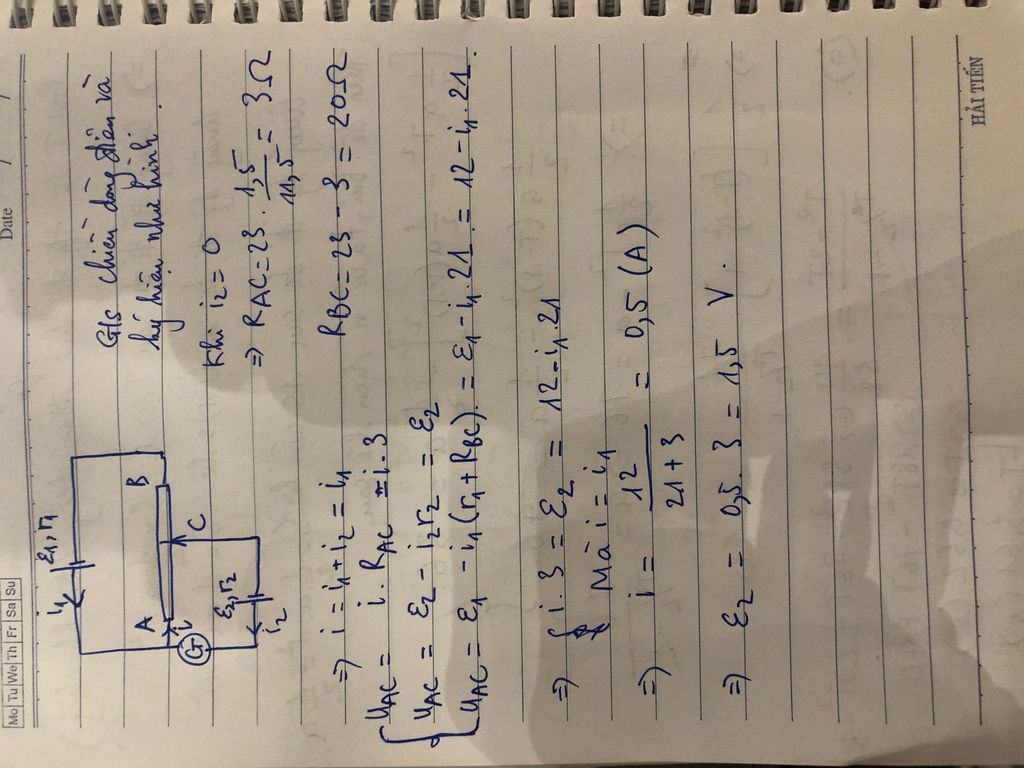 Mo Tu We Th Fr Sa Su
Date / /
i₁ ε₁, r₁
A B
i
G C
ε₂, r₂
i₂
Gis chiều dòng điện và
ký hiệu như hình
Khi i₂ = 0
=> RAC = 23 . 1,5/11,5 = 3Ω
RBC = 23 - 3 = 20Ω
=> i = i₁ + i₂ = i₁
UAC = i . RAC = i . 3
UAC = ε₂ - i₂r₂ = ε₂
UAC = ε₁ - i₁(r₁ + RBC) = ε₁ - i₁ . 21 = 12 - i₁ . 21.
=> { i . 3 = ε₂ = 12 - i₁ . 21
Mà i = i₁
=> i = 12/(21 + 3) = 0,5 (A)
=> ε₂ = 0,5 . 3 = 1,5 V.
HẢI TIẾN